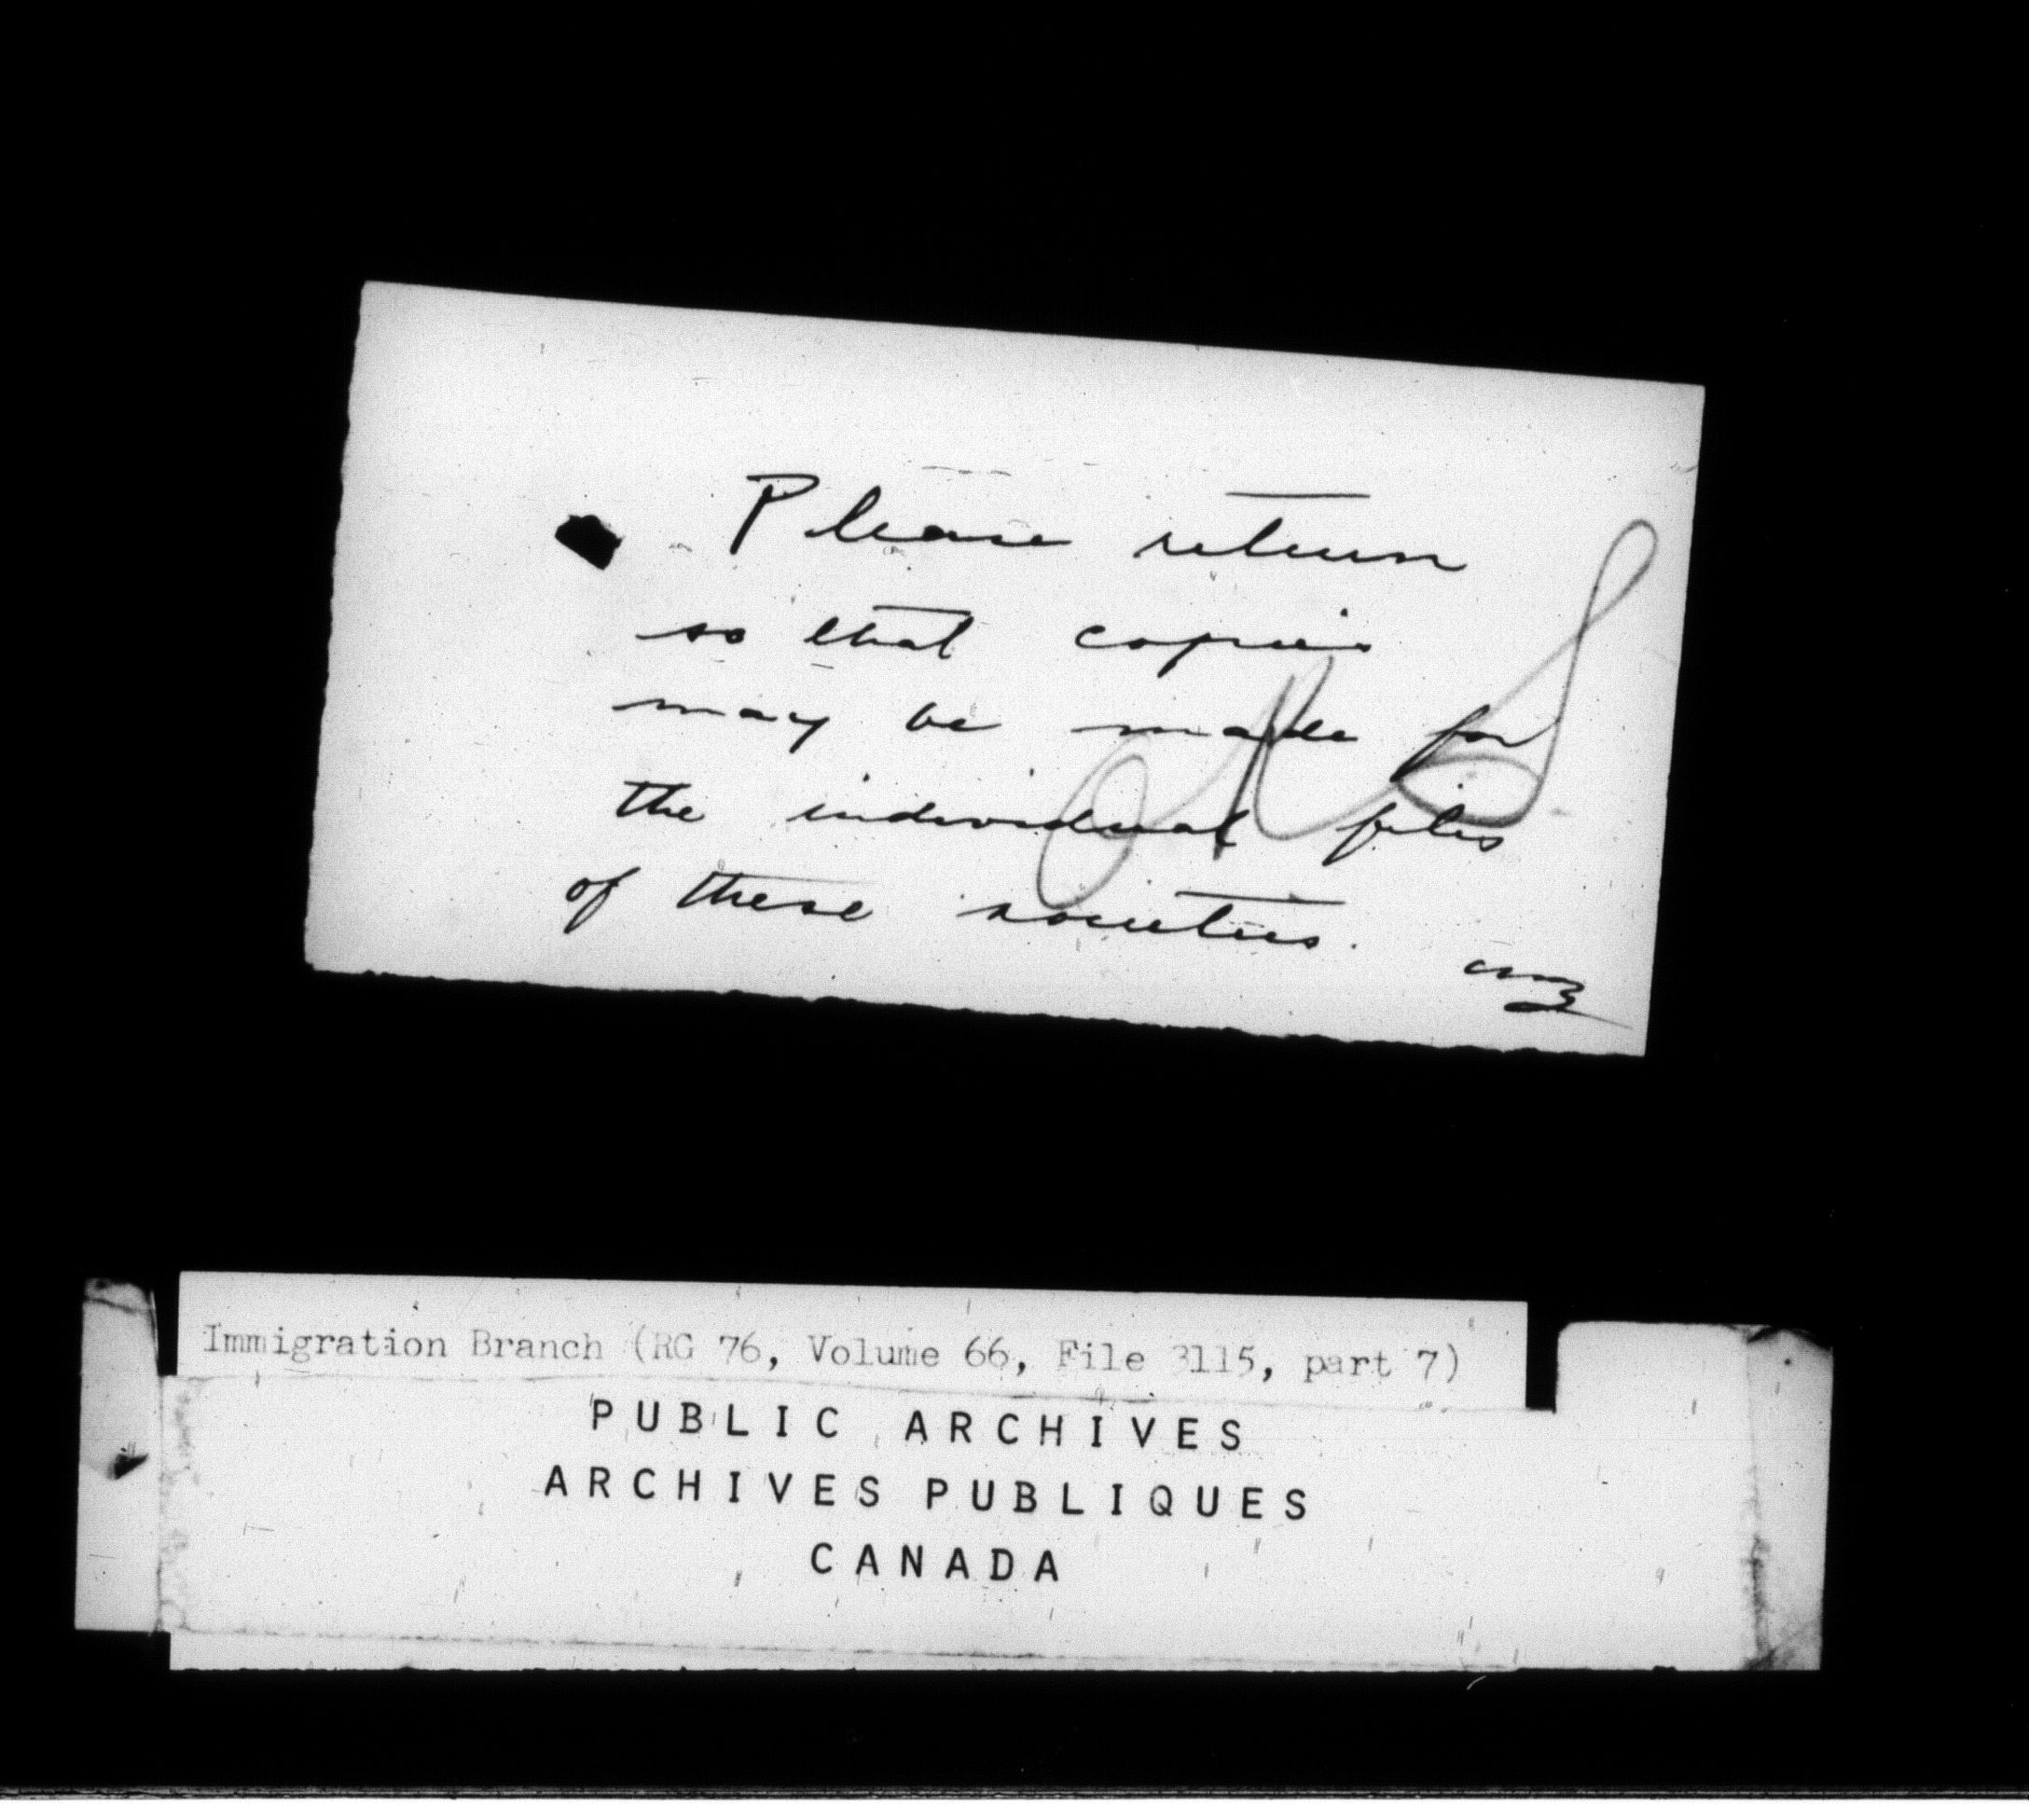 Please return
so that copies
may be made for
the individual files
of these societies.
Immigration Branch (RG 76, Volume 66, File 3115, part 7)
PUBLIC ARCHIVES
ARCHIVES PUBLIQUES
CANADA